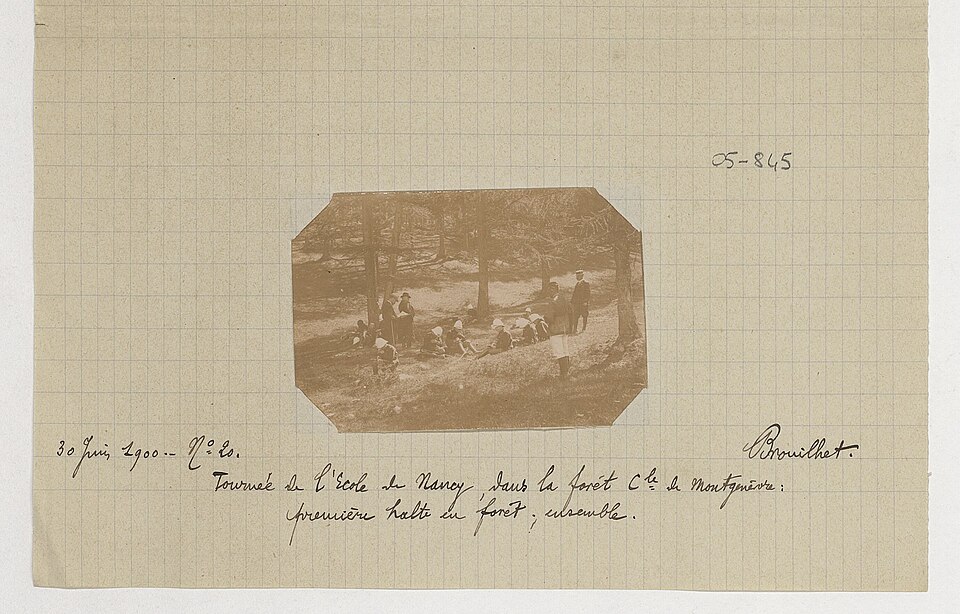 05-845
30 Juin 1900.- Nº 20.
Brouilhet.
Tournée de l'Ecole de Nancy, dans la forêt Cle de Montgenèvre:
première halte en forêt; ensemble.